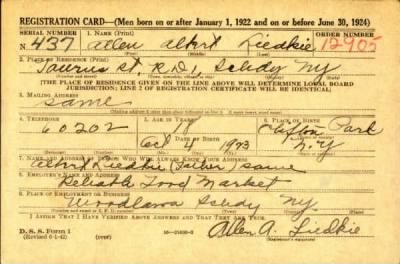 REGISTRATION CARD—(Men born on or after January 1, 1922 and on or before June 30, 1924)
SERIAL NUMBER 1. NAME (Print) ORDER NUMBER
N 437 Allen Albert Liedkie 12905
(First) (Middle) (Last)
2. PLACE OF RESIDENCE (Print)
Taurus St R.D.1 Schdy NY
(THE PLACE OF RESIDENCE GIVEN ON THE LINE ABOVE WILL DETERMINE LOCAL BOARD
JURISDICTION; LINE 2 OF REGISTRATION CERTIFICATE WILL BE IDENTICAL)
3. MAILING ADDRESS
Same
4. TELEPHONE 5. AGE IN YEARS 6. PLACE OF BIRTH
60202 18 Clifton Park
DATE OF BIRTH
Oct 4 1923 N.Y
7. NAME AND ADDRESS OF PERSON WHO WILL ALWAYS KNOW YOUR ADDRESS
Albert Liedkie (Father) same
8. EMPLOYER'S NAME AND ADDRESS
Reliable Food Market
9. PLACE OF EMPLOYMENT OR BUSINESS
Woodlawn Schdy NY
I AFFIRM THAT I HAVE VERIFIED ABOVE ANSWERS AND THAT THEY ARE TRUE.
D. S. S. Form 1
(Revised 6-1-42) (over) Allen A. Liedkie